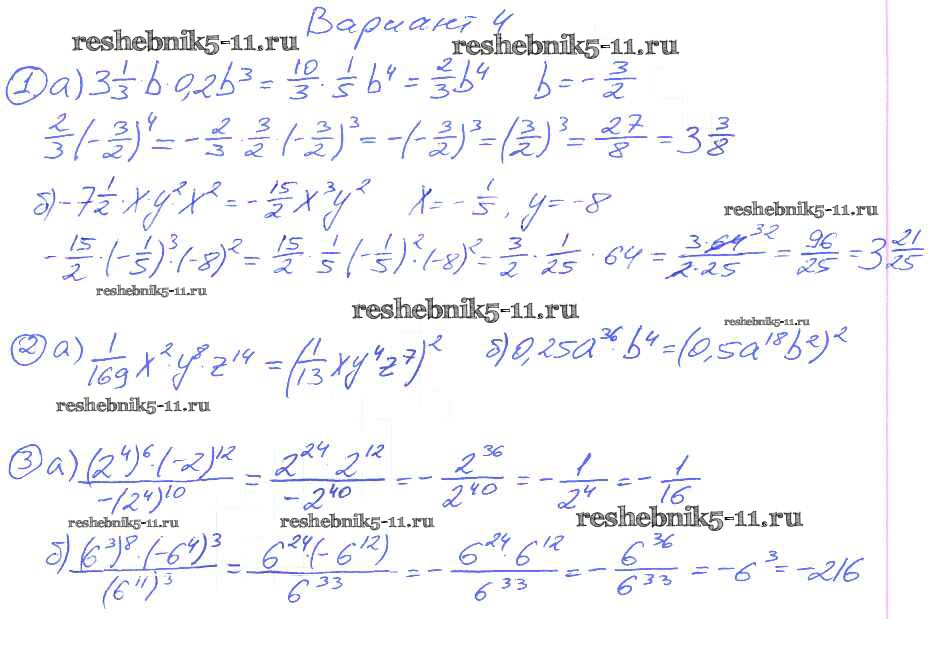 Вариант 4
reshebnik5-11.ru reshebnik5-11.ru
① а) 3 1/3 · b · 0,2b³ = 10/3 · 1/5 b⁴ = 2/3 b⁴ b = - 3/2
2/3 (- 3/2)⁴ = - 2/3 · 3/2 · (- 3/2)³ = -(- 3/2)³ = (3/2)³ = 27/8 = 3 3/8
б) -7 1/2 · x y² · x² = - 15/2 x³y² x = - 1/5, y = -8
reshebnik5-11.ru
- 15/2 · (- 1/5)³ · (-8)² = 15/2 · 1/5 (- 1/5)² · (-8)² = 3/2 · 1/25 · 64 = 3·64 32 / 2·25 = 96/25 = 3 21/25
reshebnik5-11.ru
reshebnik5-11.ru
reshebnik5-11.ru
② а) 1/169 x² · y⁸ · z¹⁴ = (1/13 xy⁴z⁷)² б) 0,25a³⁶ · b⁴ = (0,5a¹⁸b²)²
reshebnik5-11.ru
③ а) (2⁴)⁶ · (-2)¹² / -(2⁴)¹⁰ = 2²⁴ · 2¹² / -2⁴⁰ = - 2³⁶/2⁴⁰ = - 1/2⁴ = - 1/16
reshebnik5-11.ru reshebnik5-11.ru reshebnik5-11.ru
б) (6³)⁸ · (-6⁴)³ / (6¹¹)³ = 6²⁴ · (-6¹²) / 6³³ = - 6²⁴ · 6¹² / 6³³ = - 6³⁶/6³³ = -6³ = -216